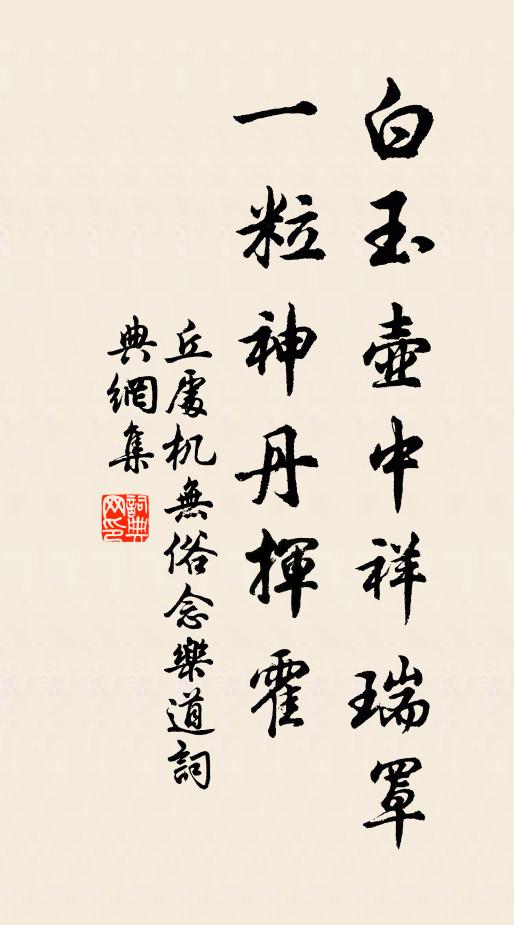 白玉壺中祥瑞罩
一粒神丹揮霍
丘處机無俗念樂道詞
典網集
詞典網印